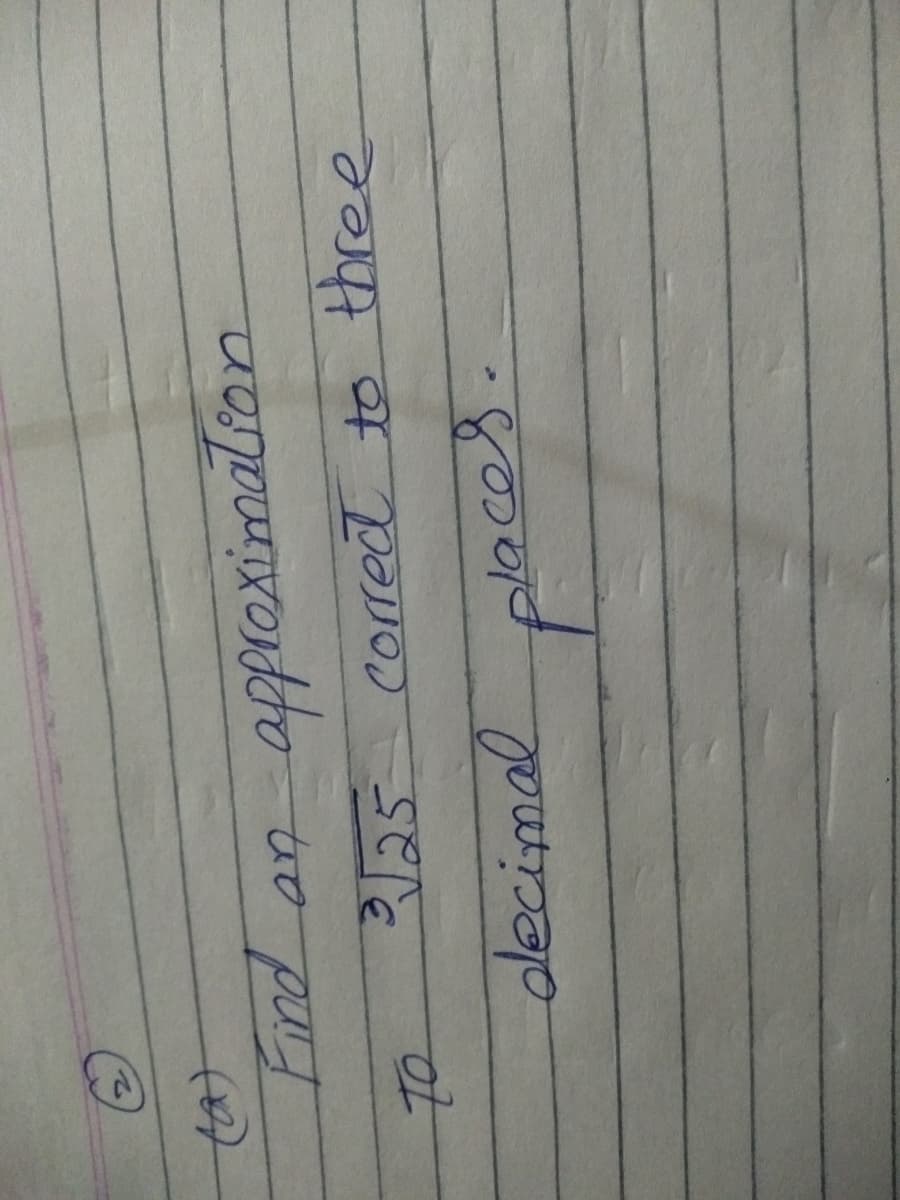 (2)
(a)
Find an approximation
To ³√25 correct to three
decimal places.